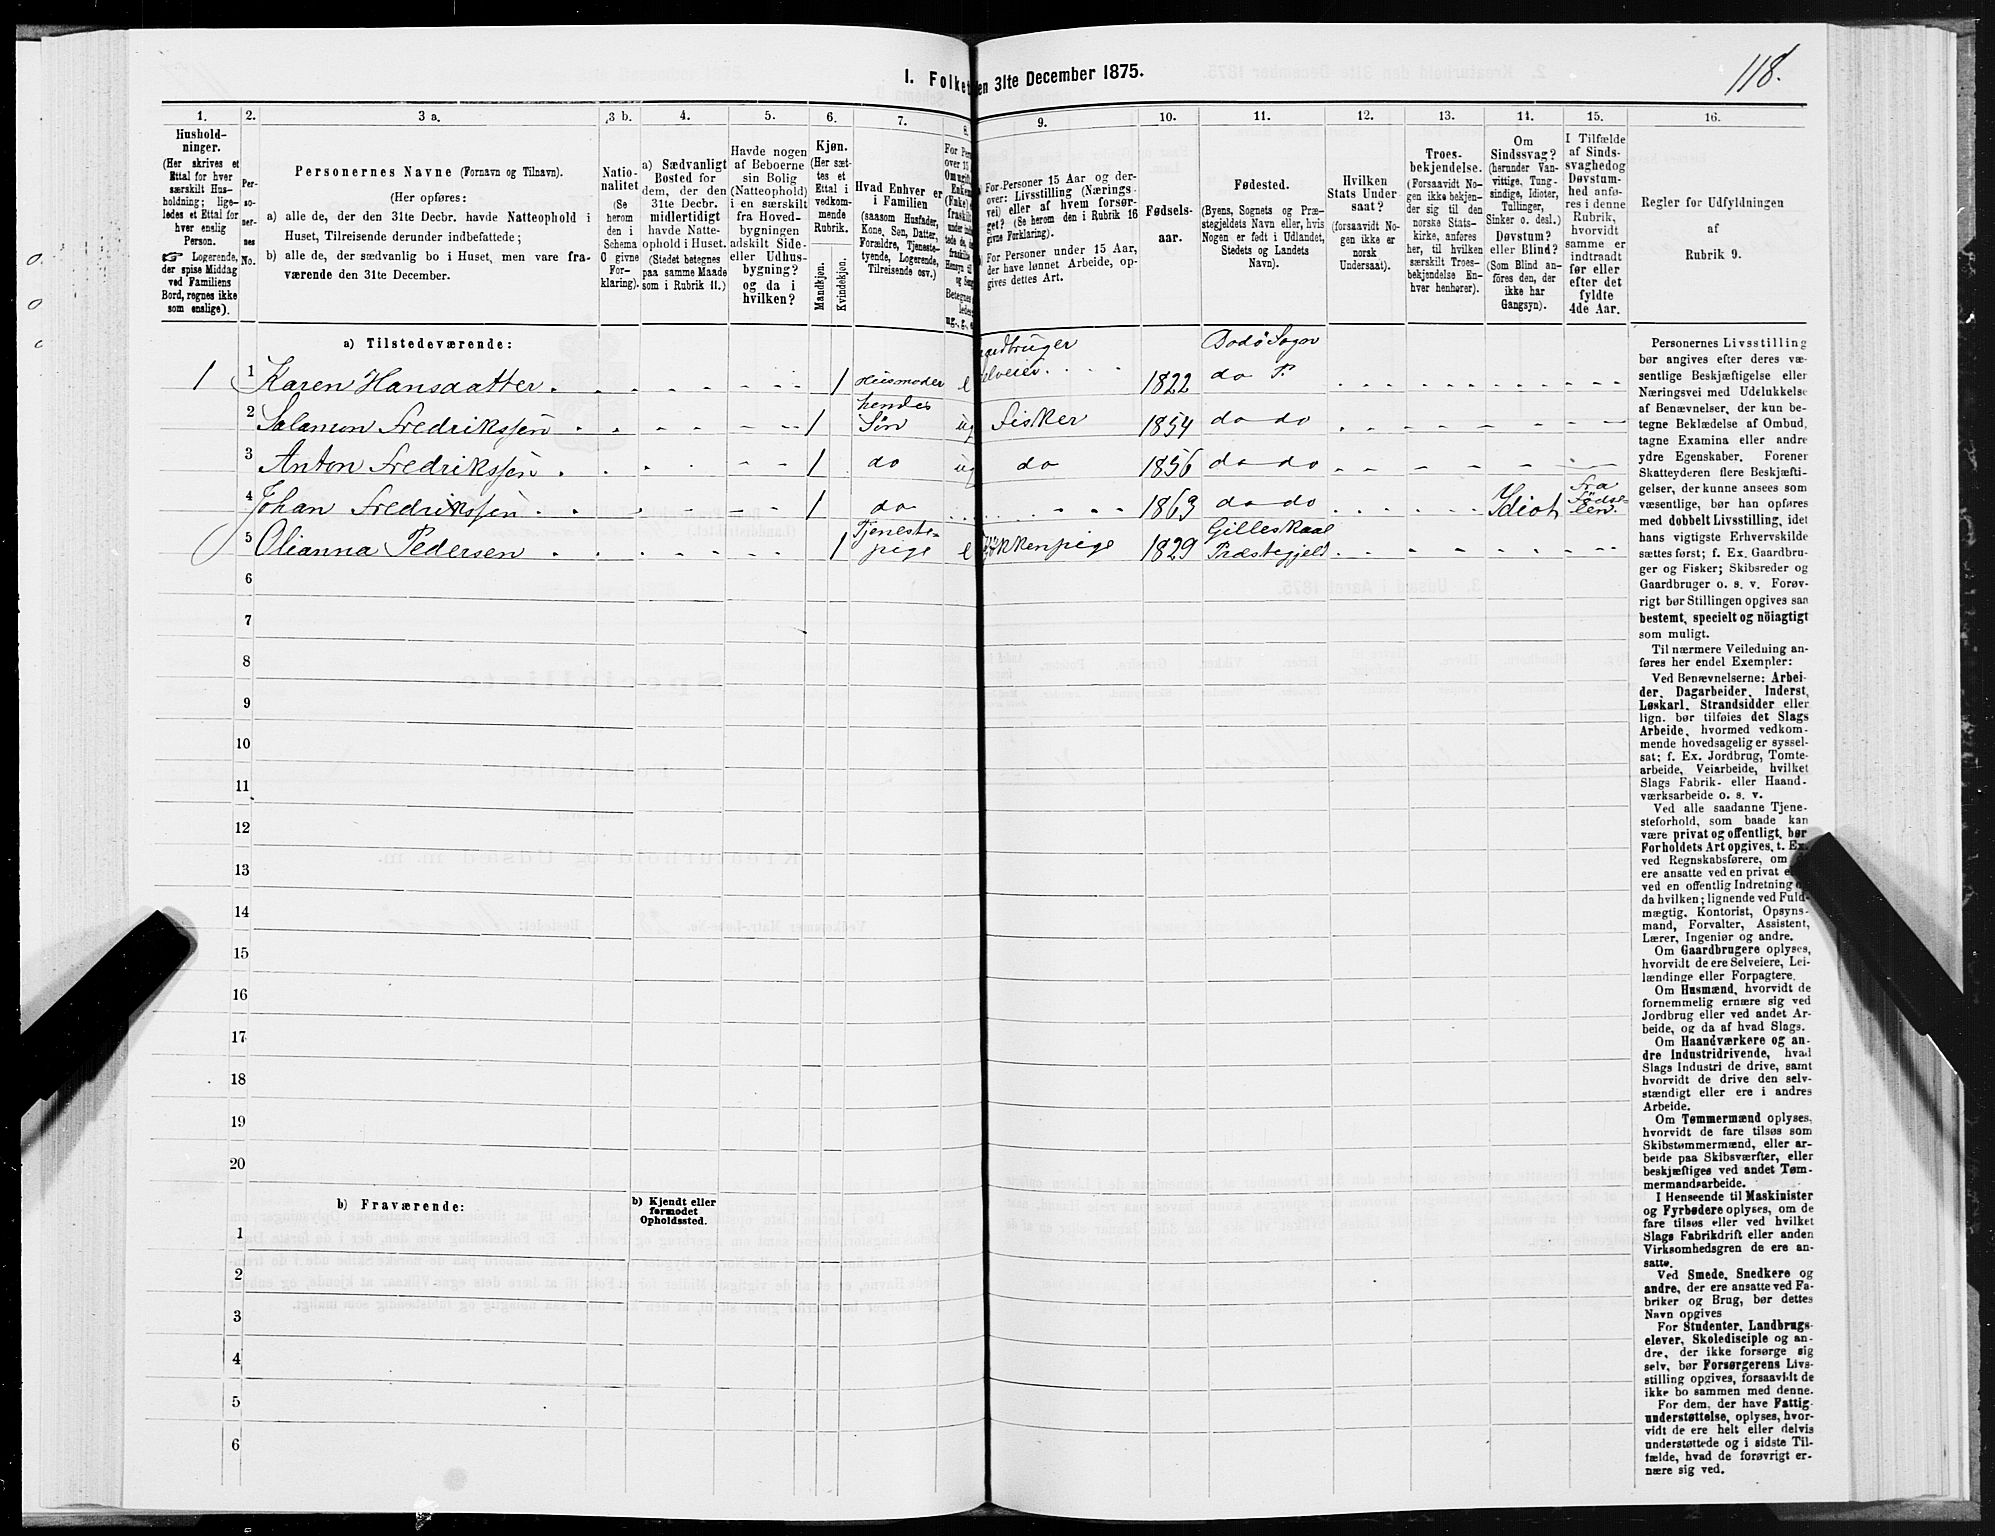 118.
I. Folket en 31te December 1875.
1.
2.
3 a.
3 b.
4.
5.
6.
7.
8.
9.
10.
11.
12.
13.
14.
15.
16.
Hushold-
ninger.
(Her skrives et
Ettal for hver
særskilt Hus-
holdning; lige-
ledes et Ettal for
hver enslig
Person.
☞ Logerende,
der spise Middag
ved Familiens
Bord, regnes ikke
som enslige).
Per-
so-
ner-
nes
No.
Personernes Navne (Fornavn og Tilnavn).
(Her opføres:
a) alle de, der den 31te Decbr. havde Natteophold i
Huset, Tilreisende derunder indbefattede;
b) alle de, der sædvanlig bo i Huset, men vare fra-
værende den 31te December.
Natio-
nalitet
(Se
herom
den i
Schema
C givne
For-
klaring).
a) Sædvanligt
Bosted for
dem, der den
31te Decbr.
midlertidigt
havde Natte-
ophold i Huset.
(Stedet betegnes
paa samme Maade
som i Rubrik 11.)
Havde nogen
af Beboerne
sin Bolig
(Natteophold)
i en særskilt
fra Hoved-
bygningen
adskilt Side-
eller Udhus-
bygning?
og da i
hvilken?
Kjøn.
(Her sæt-
tes et
Ettal i
vedkom-
mende
Rubrik.
Mandkjøn.
Kvindekjøn.
Hvad Enhver er
i Familien
(saasom Husfader,
Kone, Søn, Datter,
Forældre, Tjeneste-
tyende, Logerende,
Tilreisende osv.)
For Personer 15 Aar og der-
over: Livsstilling (Nærings-
vei) eller af hvem forsør-
get? (Se herom den i Rubrik 16
givne Forklaring).
For Personer under 15 Aar,
der have lønnet Arbeide, op-
gives dettes Art.
Fødsels-
aar.
Fødested.
(Byens, Sognets og Præ-
stegjeldets Navn eller, hvis
Nogen er født i Udlandet,
Stedets og Landets
Navn).
Hvilken
Stats Under
saat?
(forsaavidt No-
gen ikke er
norsk
Undersaat).
Troes-
bekjendelse.
(Forsaavidt No-
gen ikke bekjen-
der sig til den
norske Stats-
kirke, anføres
her, til hvilken
særskilt Troes-
bekjendelse En-
hver henhører).
Om
Sindssvag?
(herunder Van-
vittige, Tung-
sindige, Idioter,
Tullinger,
Sinker o. desl.)
Døvstum?
eller Blind?
(Som Blind an-
føres den, der
ikke har
Gangsyn).
I Tilfælde
af Sinds-
svaghed og
Døvstum-
hed anfø-
res i denne
Rubrik,
hvorvidt
samme er
indtraadt
før eller
efter det
fyldte
4de Aar.
Regler for Udfyldningen
af
Rubrik 9.
a) Tilstedeværende:
1 1 Karen Hansdatter 1 Husmoder e ardbruger elveier 1822 Bodö Sogn do P.
2 Salamon Fredrikssen 1 hendes Sön ug Fisker 1854 do do
3 Anton Fredrikssen 1 do ug do 1856 do do
4 Johan Fredrikssen 1 do 1863 do do Idiot fra Födse-len
5 Olianna Pedersen 1 Tjeneste-pige e Kökkenpige 1829 Gilleskaal Præstegjeld
6
7
8
9
10
11
12
13
14
15
16
17
18
19
20
b) Fraværende:
b) Kjendt eller
formodet
Opholdssted.
1
2
3
4
5
6
Personernes Livsstilling
bør angives efter deres væ-
sentlige Beskjæftigelse eller
Næringsvei med Udelukkelse
af Benævnelser, der kun be-
tegne Beklædelse af Ombud,
tagne Examina eller andre
ydre Egenskaber. Forener
Skatteyderen flere Beskjæfti-
gelser, der kunne ansees som
væsentlige, bør han opføres
med dobbelt Livsstilling, idet
hans vigtigste Erhvervskilde
sættes først; f. Ex. Gaardbru-
ger og Fisker; Skibsreder og
Gaardbruger o. s. v. Forøv-
rigt bør Stillingen opgives saa
bestemt, specielt og nöiagtigt
som muligt.
Til nærmere Veiledning an-
føres her endel Exempler:
Ved Benævnelserne: Arbei-
der, Dagarbeider, Inderst,
Løskarl, Strandsidder eller
lign. bør tilføies det Slags
Arbeide, hvormed vedkom-
mende hovedsagelig er syssel-
sat; f. Ex. Jordbrug, Tomte-
arbeide, Veiarbeide, hvilket
Slags Fabrik- eller Haand-
værksarbeide o. s. v.
Ved alle saadanne Tjene-
steforhold, som baade kan
være privat og offentligt, bør
Forholdets Art opgives, t. Ex.
ved Regnskabsførere, om
ere ansatte ved en privat
ved en offentlig Indretning
da hvilken; lignende ved Fuld-
mægtig, Kontorist, Opsyns-
mand, Forvalter, Assistent,
Lærer, Ingeniør og andre.
Om Gaardbrugere oplyses,
hvorvidt de ere Selveiere, Lei-
lændinge eller Forpagtere.
Om Husmænd, hvorvidt de
fornemmelig ernære sig ved
Jordbrug eller ved andet Ar-
beide, og da af hvad Slags.
Om Haandværkere og an-
dre Industridrivende, hvad
Slags Industri de drive, samt
hvorvidt de drive den selv-
stændigt eller ere i andres
Arbeide.
Om Tømmermænd oplyses,
hvorvidt de fare tilsøs som
Skibstømmermænd, eller ar-
beide paa Skibsværfter, eller
beskjæftiges ved andet Tøm-
mermandsarbeide.
I Henseende til Maskinister
og Fyrbødere oplyses, om de
fare tilsøs eller ved hvilket
Slags Fabrikdrift eller anden
Virksomhedsgren de ere an-
satte.
Ved Smede, Snedkere og
andre, der ere ansatte ved Fa-
briker og Brug, bør dettes
Navn opgives
For Studenter, Landbrugs-
elever, Skoledisciple og an-
dre, der ikke forsørge sig
selv, bør Forsørgerens Livs-
stilling opgives, forsaavidt de
ikke bo sammen med denne.
For dem, der have Fattig-
understøttelse, oplyses, hvor-
vidt de ere helt eller delvis
understøttede og i sidste Til-
fælde, hvad de forøvrigt er-
nære sig ved.